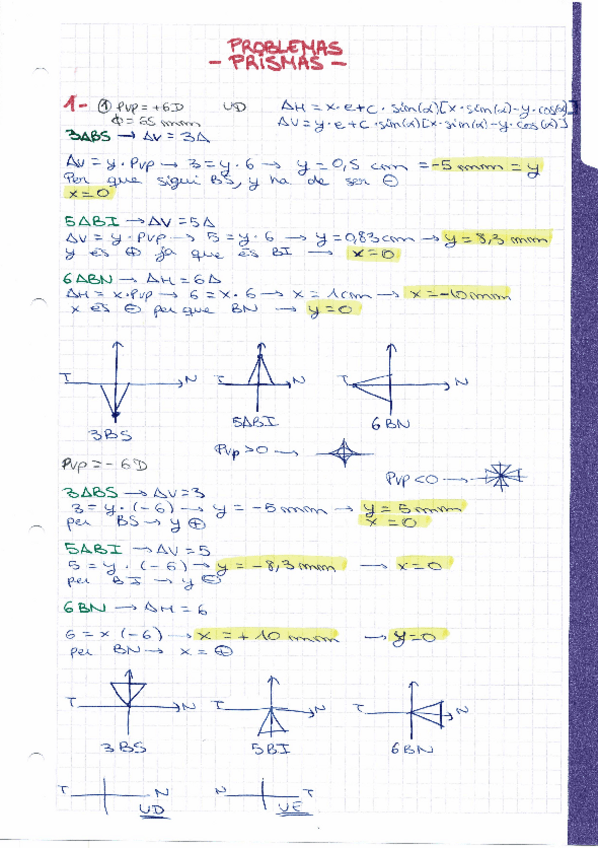 PROBLEMAS
- PRISMAS -
1- ① Pvp = +6D UD ΔH = x·e+c·sin(α)[x·sin(α)-y·cos(α)]
Φ = 65 mm ΔV = y·e+c·sin(α)[x·sin(α)-y·cos(α)]
3ΔBS → ΔV = 3Δ
ΔV = y·Pvp → 3 = y·6 → y = 0,5 cm = -5 mm = y
Per que sigui BS, y ha de ser ⊖
x = 0
5ΔBI → ΔV = 5Δ
ΔV = y·Pvp → 5 = y·6 → y = 0,83 cm → y = 8,3 mm
y és ⊕ ja que és BI → x = 0
6ΔBN → ΔH = 6Δ
ΔH = x·Pvp → 6 = x·6 → x = 1cm → x = -10 mm
x és ⊖ per que BN → y = 0
T N T N T N
3BS 5ΔBI 6BN
Pvp > 0 →
Pvp = - 6D
Pvp < 0 →
3ΔBS → ΔV = 3
3 = y·(-6) → y = -5 mm → y = 5 mm
per BS → y ⊕ x = 0
5ΔBI → ΔV = 5
5 = y·(-6) → y = -8,3 mm → x = 0
per BI → y ⊖
6BN → ΔH = 6
6 = x (-6) → x = +10 mm → y = 0
per BN → x = ⊕
T N T N T N
3BS 5BI 6BN
T N N T
UD UE